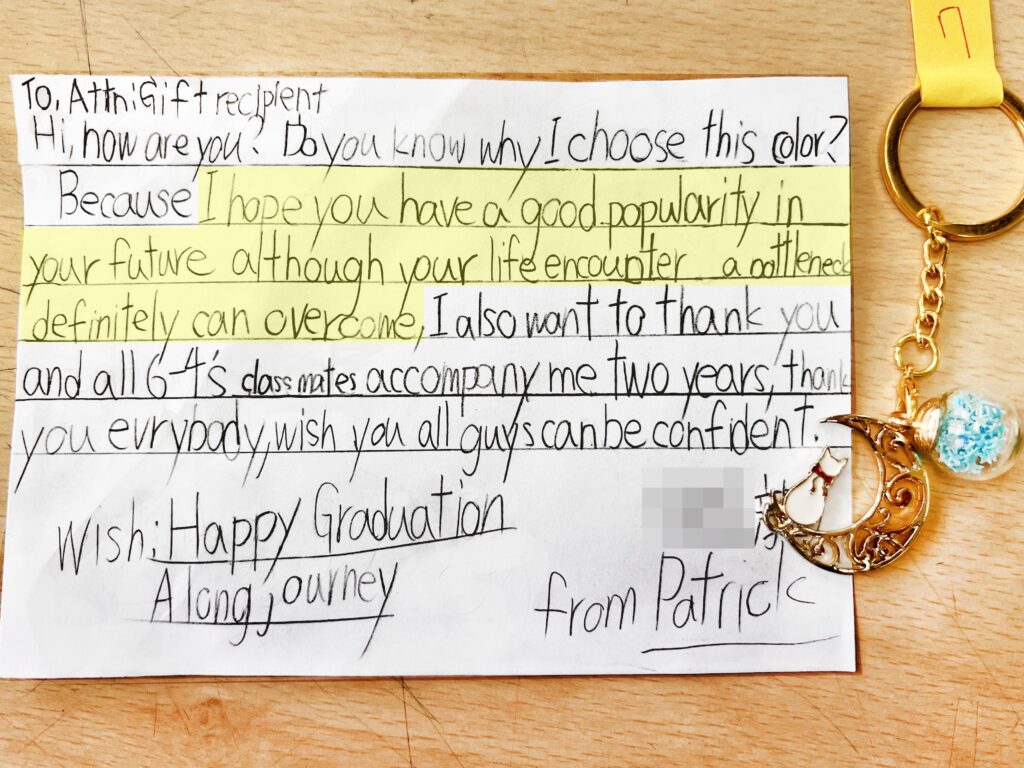 7
To, Attn: Gift recipient
Hi, how are you? Do you know why I choose this color?
Because I hope you have a good popularity in
your future although your life encounter a bottleneck
definitely can overcome, I also want to thank you
and all 6-4's classmates accompany me two years, thank
you evrybody, wish you all guys can be confident.
Wish: Happy Graduation
A long journey
from Patrick